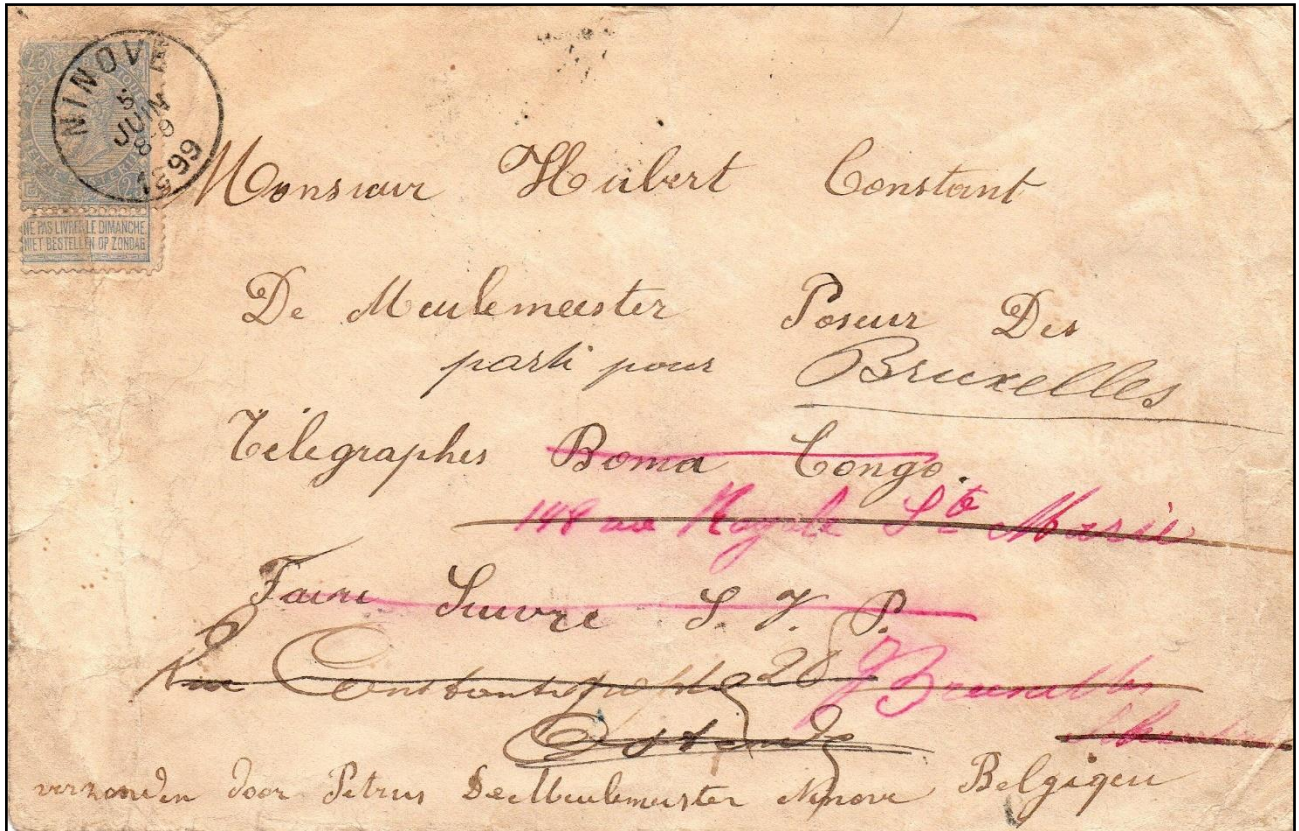 NINOVE
5
JUIN
8-9
1899
NE PAS LIVRER LE DIMANCHE
NIET BESTELLEN OP ZONDAG
Monsieur Hubert Constant
De Meulemeester Poseur Des
parti pour Bruxelles
Télegraphes Boma Congo.
rue Royale Ste Marie
Faire Suivre S. V. P.
Rue 28
Bruxelles
Ostende
verzonden door Petrus DeMeulemeester Ninove Belgiqeu